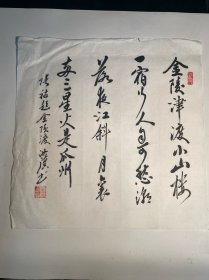 金陵津渡小山楼
一宿行人自可愁潮
落夜江斜月裏
两三星火是瓜州
张祜题金陵渡 书